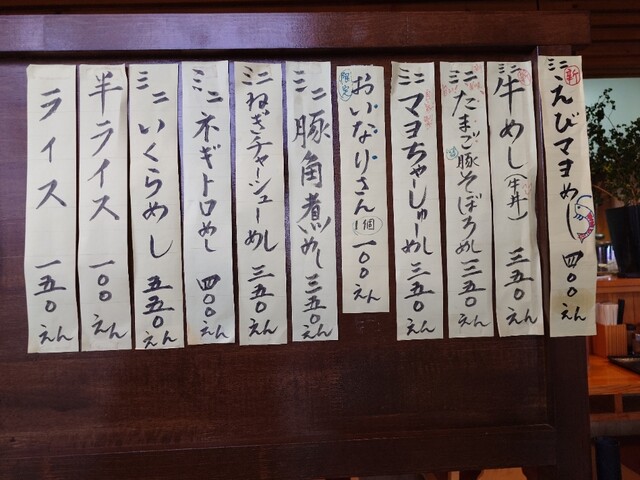 新 ミニえびマヨめし 四〇〇えん
ミニ牛めし(牛丼) 三五〇えん
ミニたまご豚そぼろめし 三五〇えん
ミニマヨちゃーしゅーめし 三五〇えん
限定 おいなりさん 1個 一〇〇えん
ミニ豚角煮めし 三五〇えん
ミニねぎチャーシューめし 三五〇えん
ミニネギトロめし 四〇〇えん
ミニいくらめし 五五〇えん
半ライス 一〇〇えん
ライス 一五〇えん